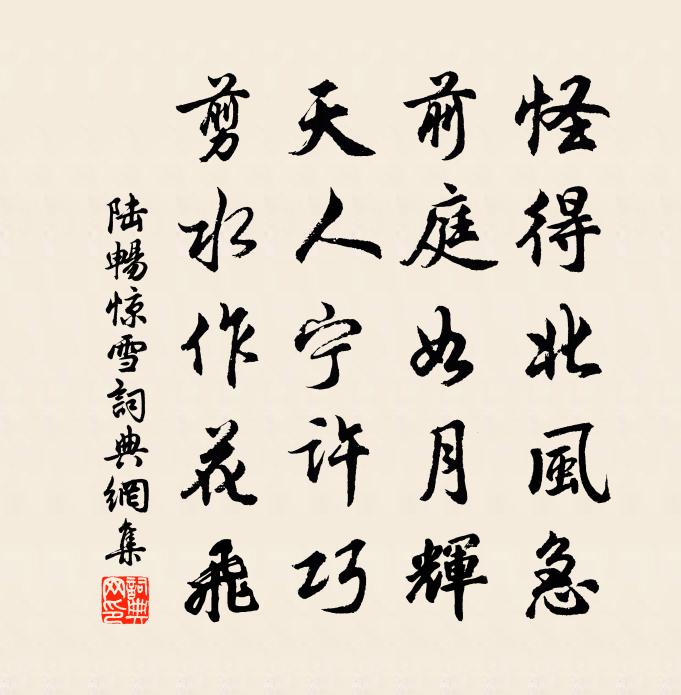 怪得北風急
前庭如月輝
天人宁許巧
剪水作花飛
陆暢惊雪詞典網集
詞典网印